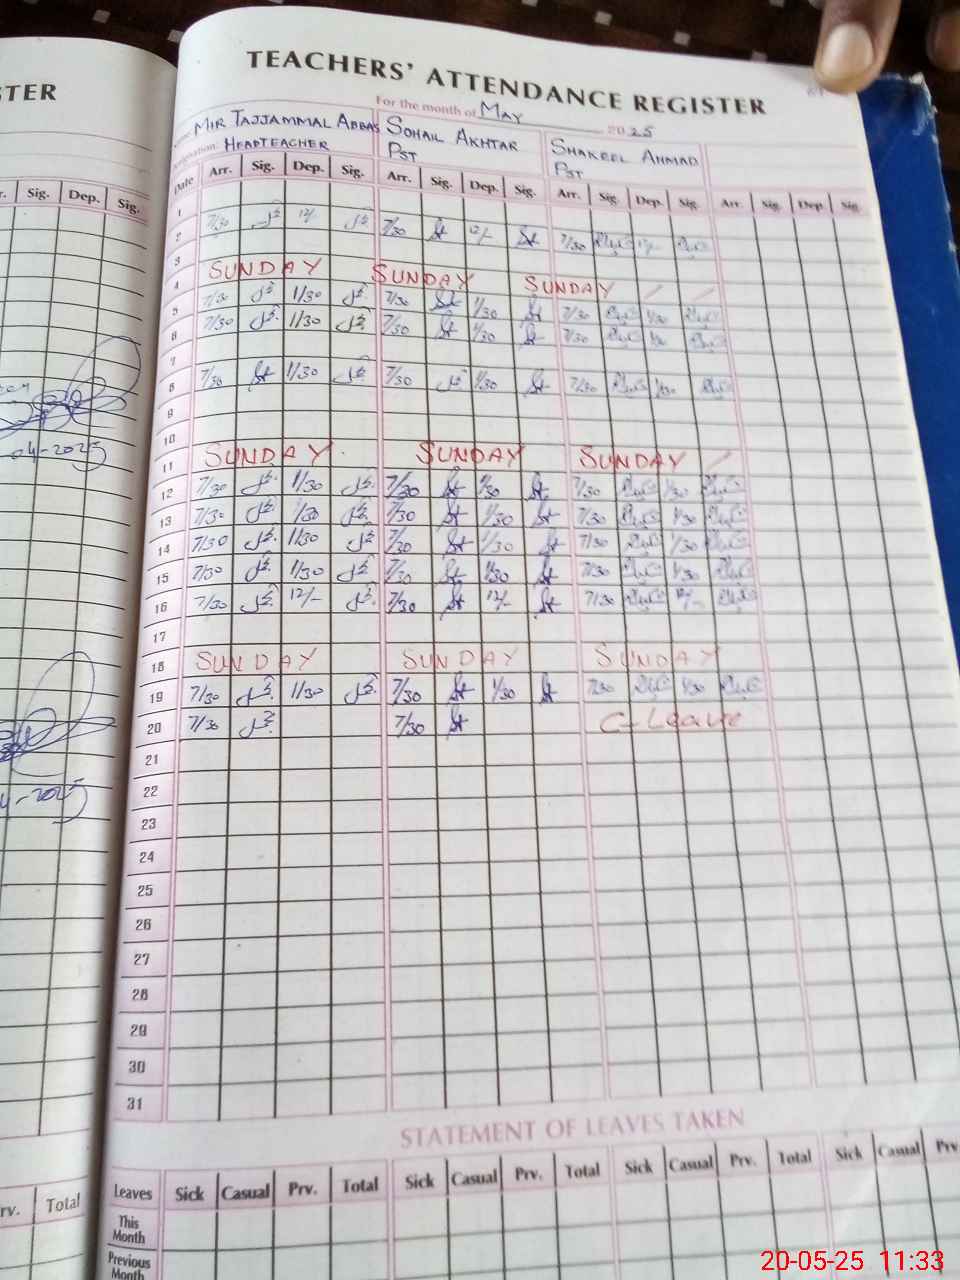 STER
TEACHERS' ATTENDANCE REGISTER
For the month of May 2025
Name: MIR TAJJAMMAL ABBAS SOHAIL AKHTAR SHAKEEL AHMAD
Designation: HEADTEACHER PST PST
r. Sig. Dep. Sig.
Date Arr. Sig. Dep. Sig. Arr. Sig. Dep. Sig. Arr. Sig. Dep. Sig. Arr. Sig. Dep. Sig.
1
2 7/30 12/- 7/30 12/- 7/30 12/-
3
4 SUNDAY SUNDAY SUNDAY
5 7/30 1/30 7/30 1/30 7/30 1/30
6 7/30 1/30 7/30 1/30 7/30 1/30
7
8 7/30 1/30 7/30 1/30 7/30 1/30
9
10
11 SUNDAY SUNDAY SUNDAY
12 7/30 1/30 7/30 1/30 7/30 1/30
13 7/30 1/30 7/30 1/30 7/30 1/30
14 7/30 1/30 7/30 1/30 7/30 1/30
15 7/30 1/30 7/30 1/30 7/30 1/30
16 7/30 12/- 7/30 12/- 7/30 12/-
17
18 SUNDAY SUNDAY SUNDAY
19 7/30 1/30 7/30 1/30 7/30 1/30
20 7/30 7/30 C-Leave
21
22
23
24
25
26
27
28
29
30
31
04-2025
4-2025
STATEMENT OF LEAVES TAKEN
rv. Total
Leaves Sick Casual Prv. Total Sick Casual Prv. Total Sick Casual Prv. Total Sick Casual Prv
This
Month
Previous
Month
20-05-25 11:33